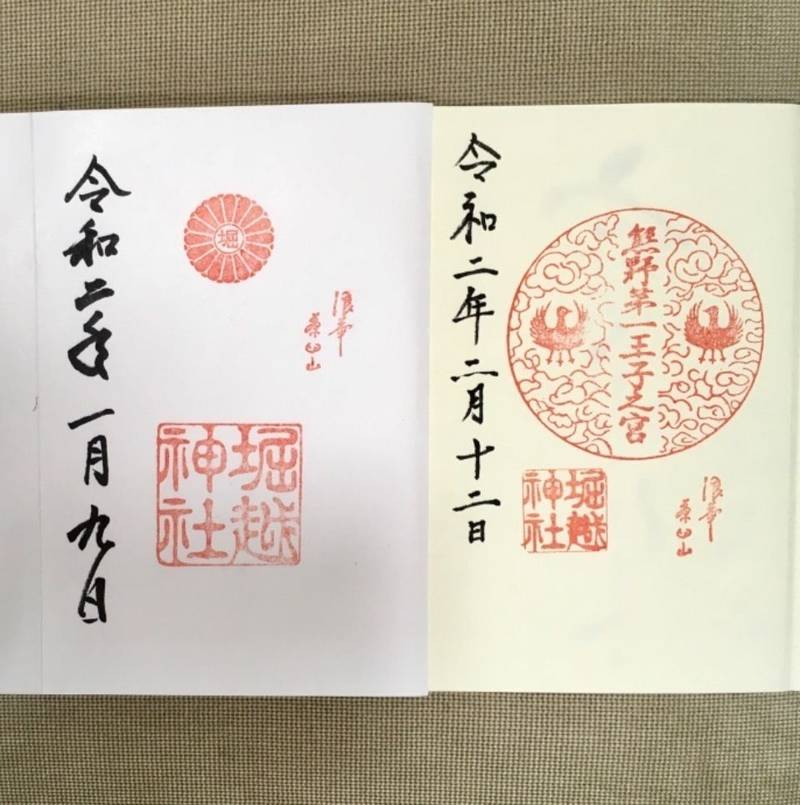 令和二年一月九日
堀
浪華
茶臼山
堀越
神社
令和二年二月十二日
熊野第一王子之宮
堀越
神社
浪華
茶臼山